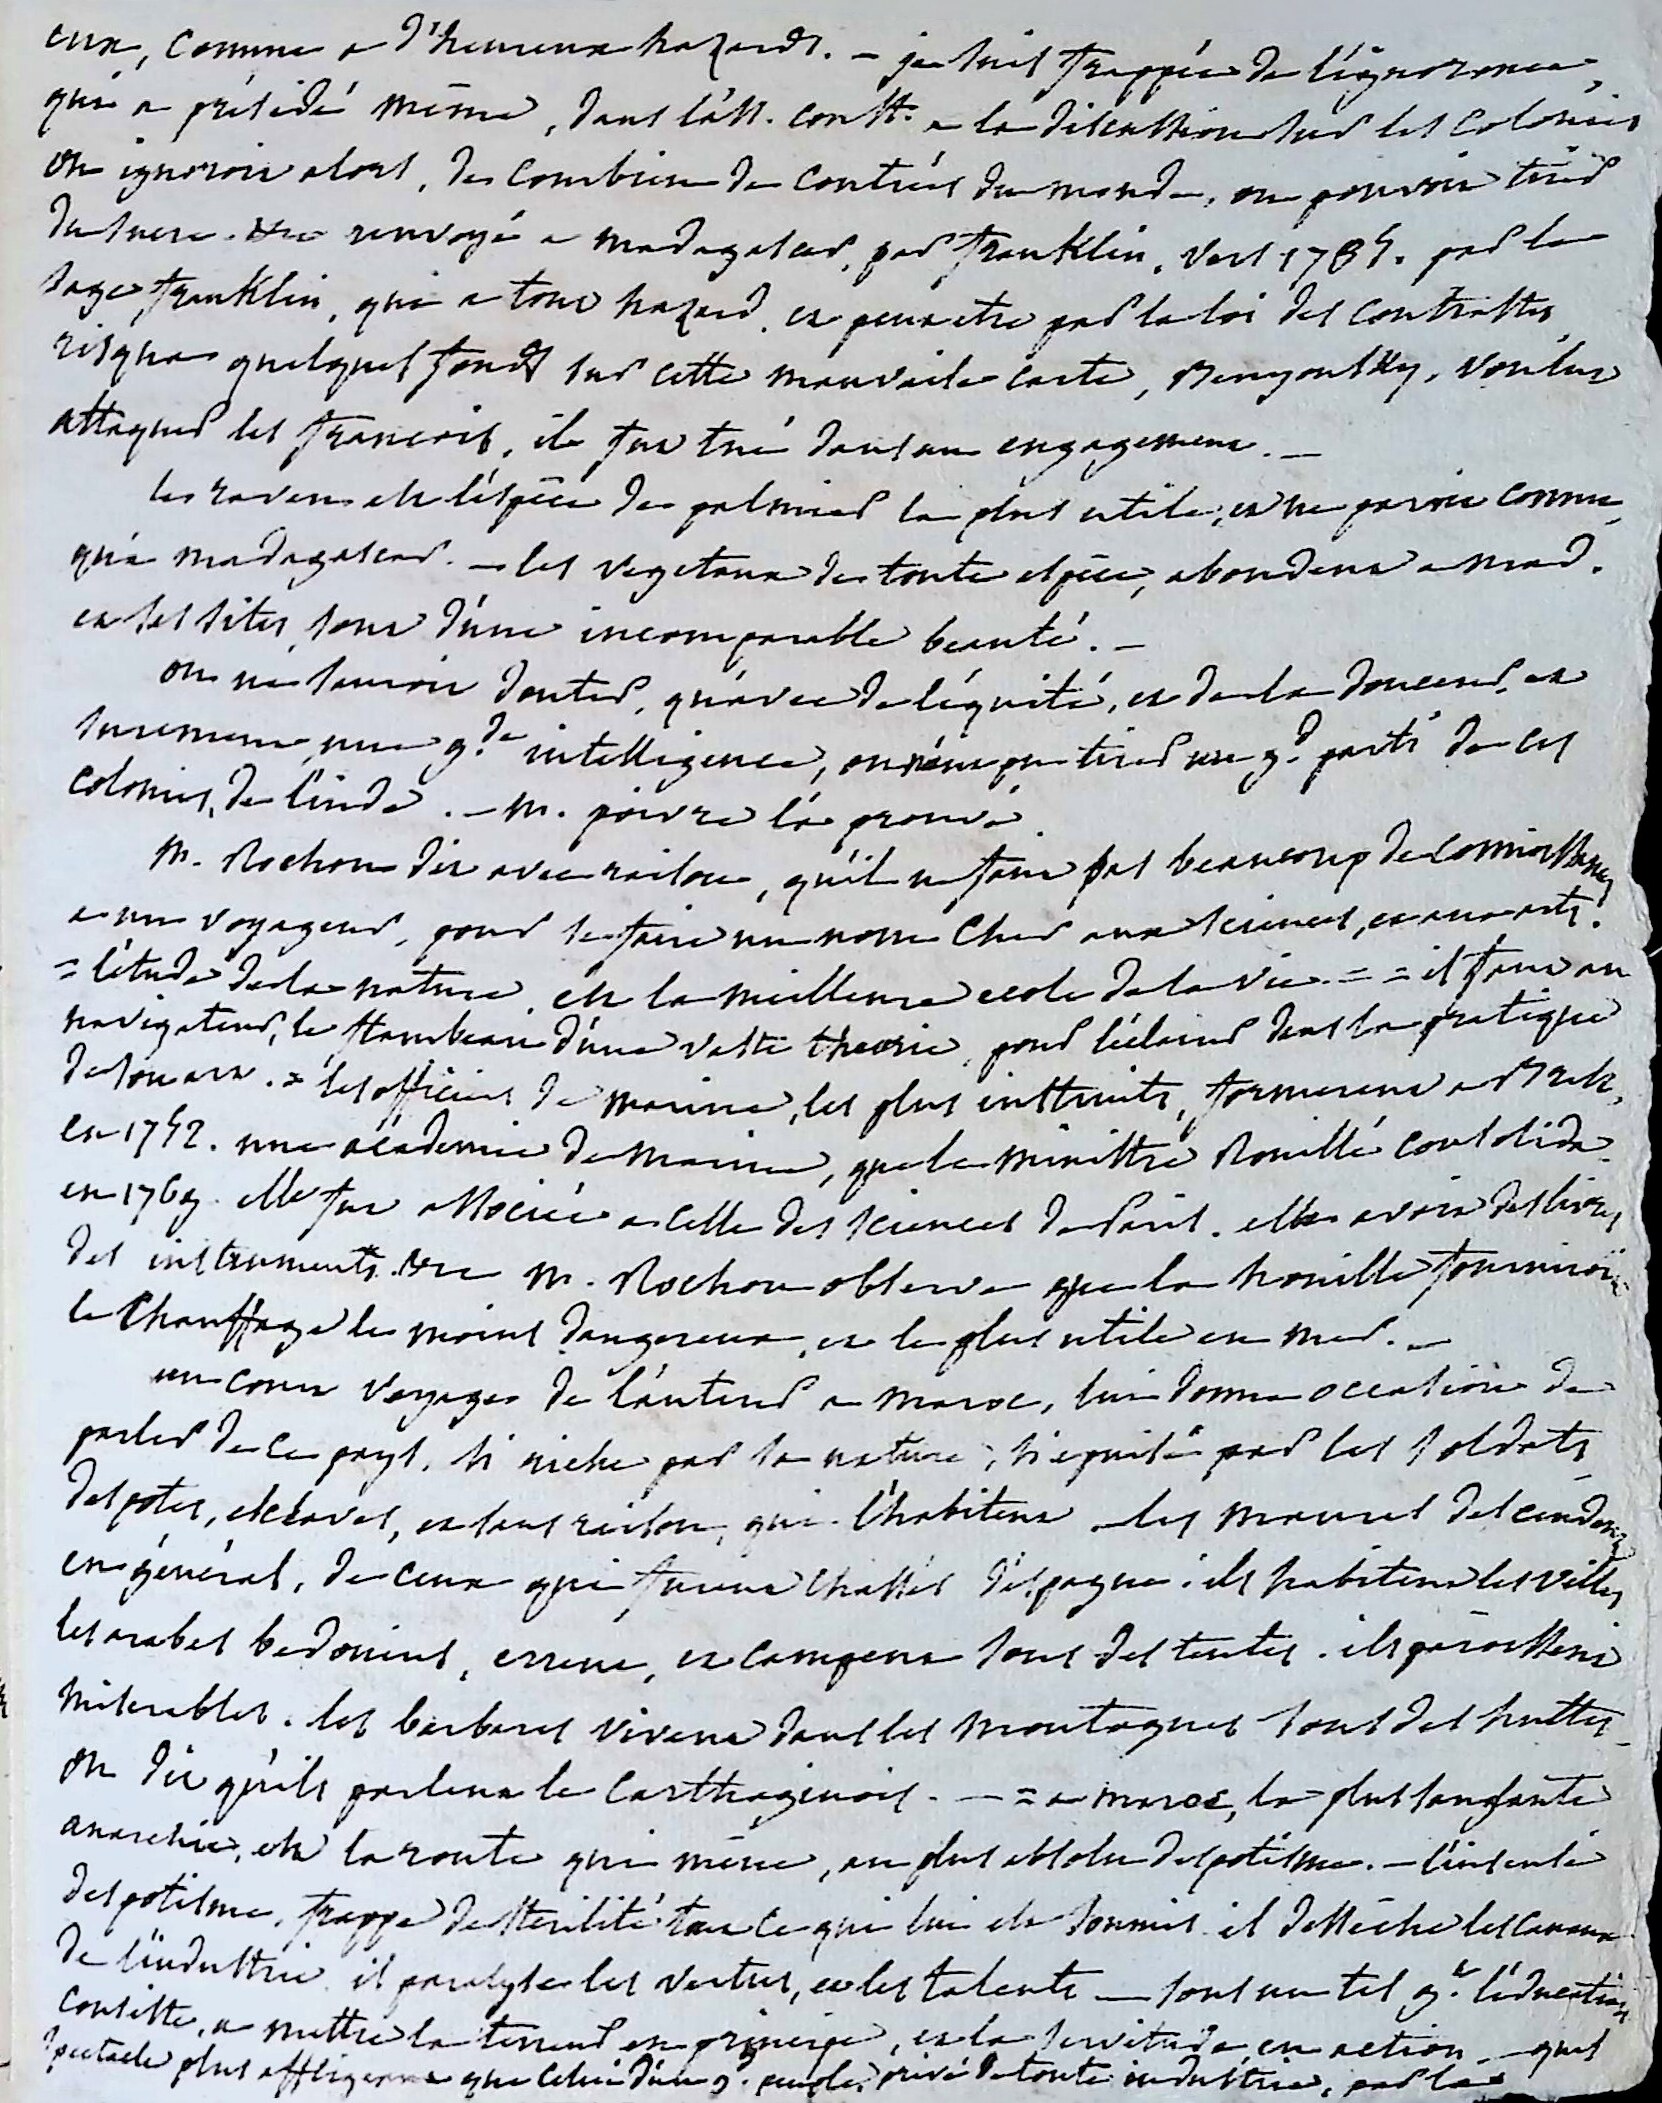 eux, comme a d'heureux hazards. — je suis frappée de l'ignorance,
qui a présidé même, dans l'ass. const. a la discussion sur les colonies
on ignoroit alors, de combien de contrées du monde, on pouvoit tirer
du sucre. renvoyé a madagascar, par franklin, vers 1785. par le
sage franklin, qui a tout hazard, et peut etre par la loi des contrastes
risqua quelques fonds sur cette mauvaise carte, Benyousky, voulut
attaquer les francois, il fut tué dans un engagement. —
le raven est l'éspèce de palmier la plus utile, et ne paroit connu
qu'a madagascar. — les vegetaux de toute espèce, abondent a mad.
et les sites, sont d'une incomparable beauté. —
on ne sauroit douter, qu'avec de l'équité, et de la douceur, et
surement une gde intelligence, on n'eut pu tirer un gd parti de ces
colonies, de l'inde. — M. poivre l'a prouvé.
M. Rochon dit avec raison, qu'il ne faut pas beaucoup de connoissances
a un voyageur, pour se faire un nom cher aux sciences, et aux arts.
= l'étude de la nature, est la meilleure ecole de la vie. = = il faut au
navigateur, le flambeau d'une vaste theorie, pour l'éclairer dans la pratique
de son art. = les officiers de marine, les plus instruits, formerent a Brest,
en 1752. une académie de marine, que le ministre Rouillé consolida.
en 1769. elle fut associée a celle des sciences de Paris. elle avoit des livres
des instruments. M. Rochon observe que la houille fourniroit
le chauffage le moins dangereux, et le plus utile en mer. —
un court voyage de l'auteur a maroc, lui donna occasion de
parler de ce pays, si riche par sa nature, si epuisé par les soldats
despotes, esclaves, et sans raison, qui l'habitent — les maures descendent
en général, de ceux qui furent chassés d'espagne : ils habitent les villes
les arabes bedouins, errent, et campent sous des tentes. ils paroissent
miserables. les barbares vivent dans les montagnes sous des huttes
on dit qu'ils parlent le carthaginois. — = a maroc, la plus sanglante
anarchie, est la route qui mène, au plus absolu despotisme. — l'insensé
despotisme, frappe de sterilité tout ce qui lui est soumis il dessèche les canaux
de l'industrie il paralyse les vertus, et les talents — sous un tel gt l'education
consiste, a mettre la terreur en principe, et la servitude en action. — quel
spectacle plus affligeant que celui d'un gd peuple, privé de toute industrie, par la